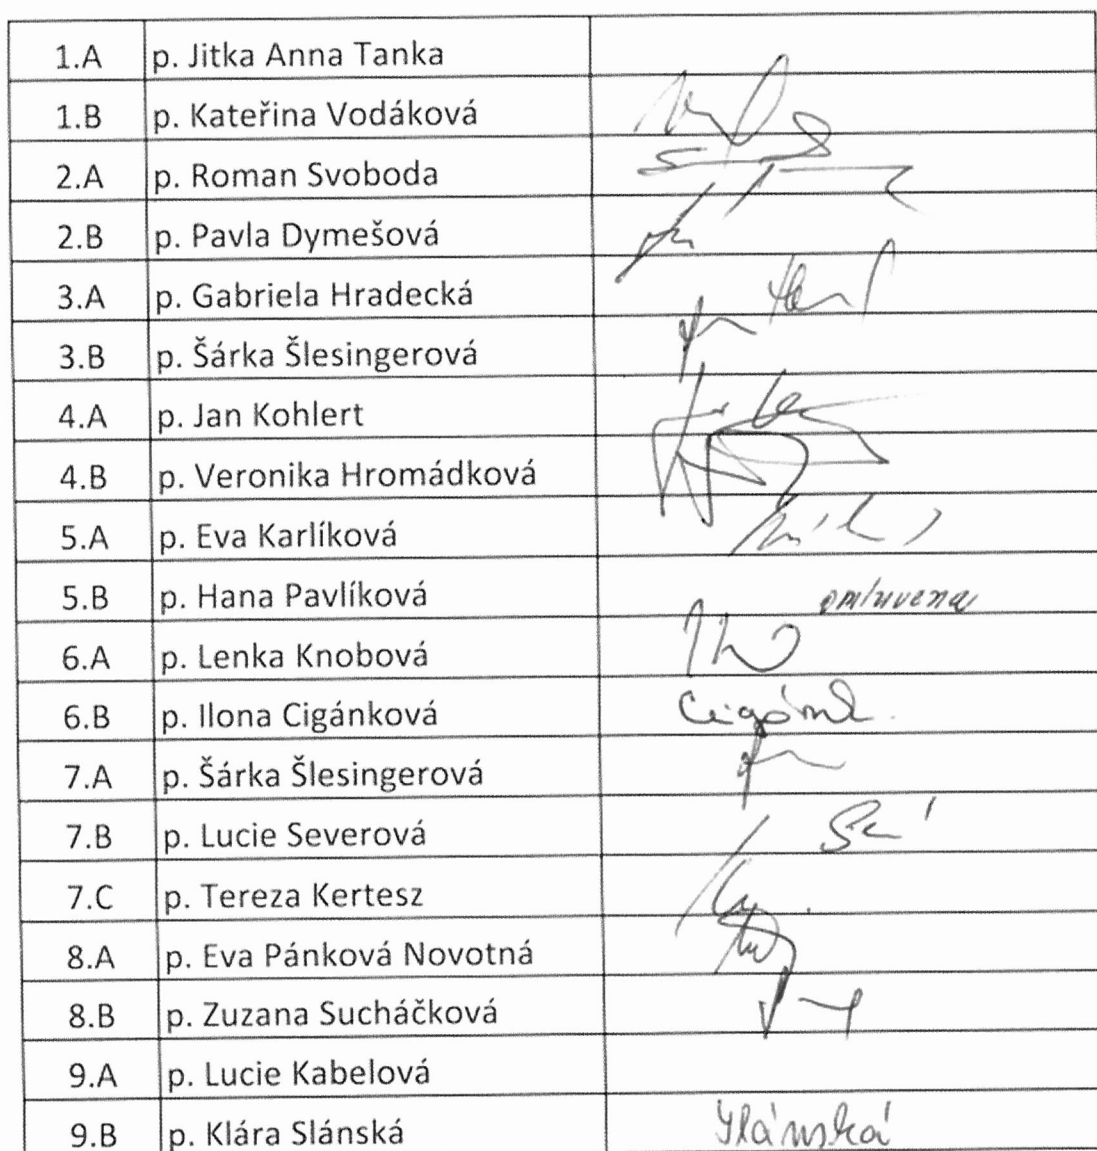 1.A p. Jitka Anna Tanka
1.B p. Kateřina Vodáková
2.A p. Roman Svoboda
2.B p. Pavla Dymešová
3.A p. Gabriela Hradecká
3.B p. Šárka Šlesingerová
4.A p. Jan Kohlert
4.B p. Veronika Hromádková
5.A p. Eva Karlíková
5.B p. Hana Pavlíková omluvena
6.A p. Lenka Knobová
6.B p. Ilona Cigánková
7.A p. Šárka Šlesingerová
7.B p. Lucie Severová
7.C p. Tereza Kertesz
8.A p. Eva Pánková Novotná
8.B p. Zuzana Sucháčková
9.A p. Lucie Kabelová
9.B p. Klára Slánská Slánská